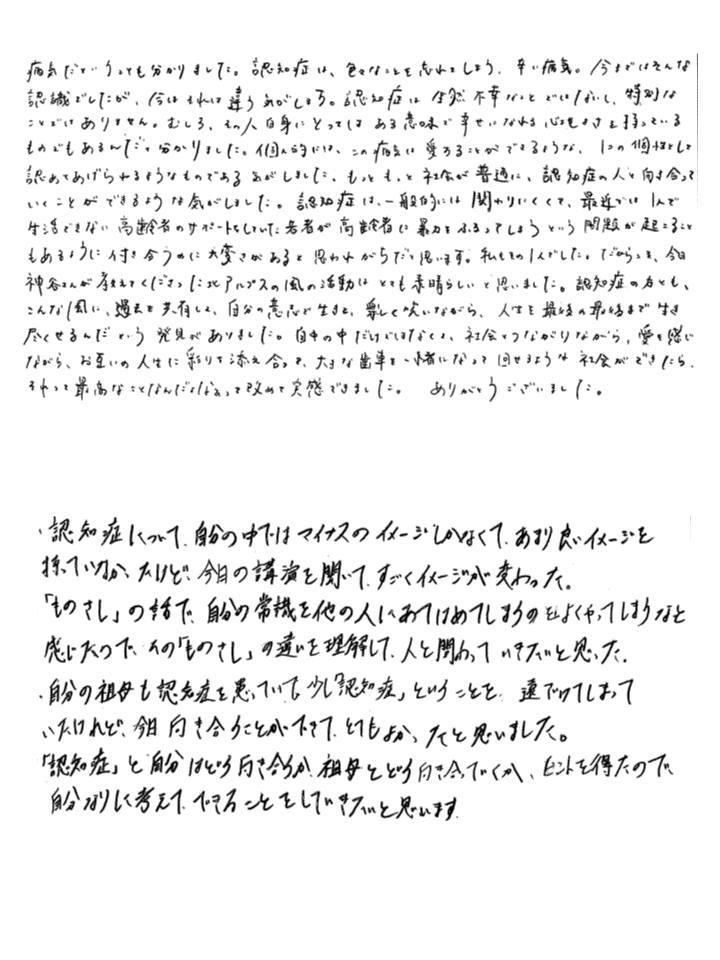 病気だということも分かりました。認知症は、色々なことを忘れてしまう、辛い病気。今まではそんな
認識でしたが、今はそれは違う気がしまる。認知症は全然不幸なことではないし、特別な
ことではありません。むしろ、その人自身にとってはある意味で幸せになれる心地よさを持っている
ものでもあるんだと分かりました。個人的には、この病気は愛することができるような、1つの個性として
認めてあげられるようなものである気がしました。もっともっと社会が普通に、認知症の人と向き合って
いくことができるような気がしました。認知症は、一般的には関わりにくくて、最近では1人で
生活できない高齢者のサポートをしていた若者が高齢者に暴力をふるってしまうという問題が起こること
もあるように付き合うのに大変さがあると思われがちだと思います。私もその1人でした。だからこそ、今日
神谷さんが教えてくださった北アルプスの風の活動はとても素晴らしいと思いました。認知症の方とも、
こんな風に、過去を共有して、自分の意志で生きて、楽しく笑いながら、人生を最後の最後まで生き
尽くせるんだという発見がありました。自分の中だけではなくて、社会とつながりながら、愛を感じ
ながら、お互いの人生に彩りを添え合って、大きな歯車を一緒になって回せるような社会ができたら、
それって最高なことなんだよなぁって改めて実感できました。 ありがとうございました。
・認知症について、自分の中ではマイナスのイメージしかなくて、あまり良いイメージを
持っていなかったけど、今日の講演を聞いて、すごくイメージが変わった。
「ものさし」の話で、自分の常識を他の人にあてはめてしまうのはよくやってしまうなと
感じたので、人の「ものさし」の違いを理解して、人と関わっていきたいと思った。
・自分の祖母も認知症を患っていて、少し「認知症」ということを、遠ざけてしまって
いたけれど、今日向き合うことができて、とてもよかったと思いました。
「認知症」と自分はどう向き合うか、祖母とどう向き合っていくか、ヒントを得たので、
自分なりに考えて、できることをしていきたいと思います。